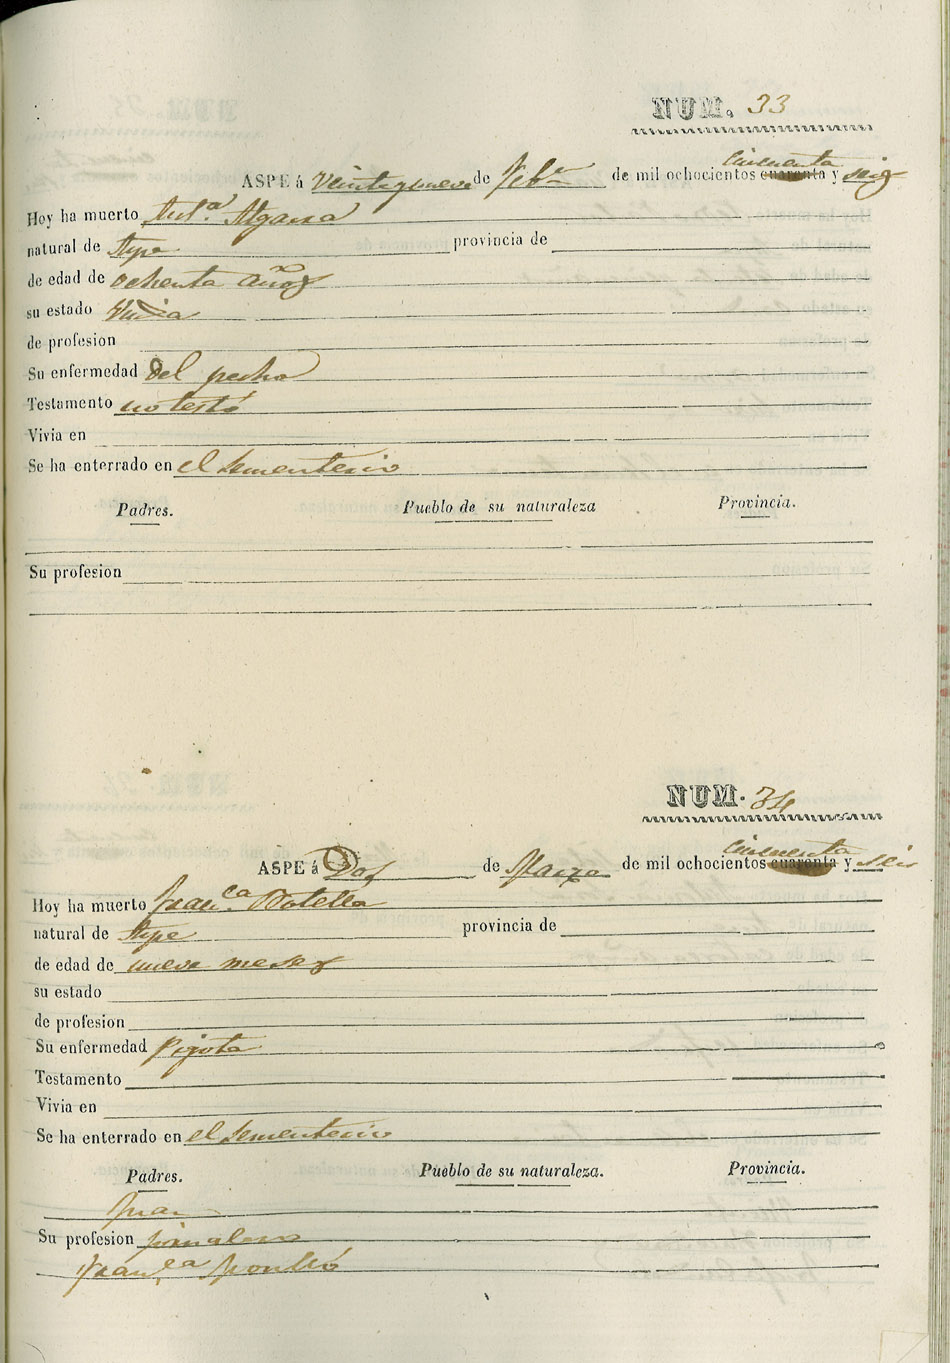 NUM. 33
cincuenta
ASPE á Veintegnueve de Feb.º de mil ochocientos cuarenta y seis
Hoy ha muerto Ant.ª Algarra
natural de Aspe provincia de
de edad de ochenta años
su estado Viuda
de profesion
Su enfermedad del pecho
Testamento no testó
Vivia en
Se ha enterrado en el sementerio
Padres. Pueblo de su naturaleza Provincia.
Su profesion
NUM. 34
cincuenta
ASPE á Dos de Marzo de mil ochocientos cuarenta y seis
Hoy ha muerto Fran.ca Botella
natural de Aspe provincia de
de edad de nueve meses
su estado
de profesion
Su enfermedad Pigota
Testamento
Vivia en
Se ha enterrado en el sementerio
Padres. Pueblo de su naturaleza. Provincia.
Juan
Su profesion jornalero
Fran.ca